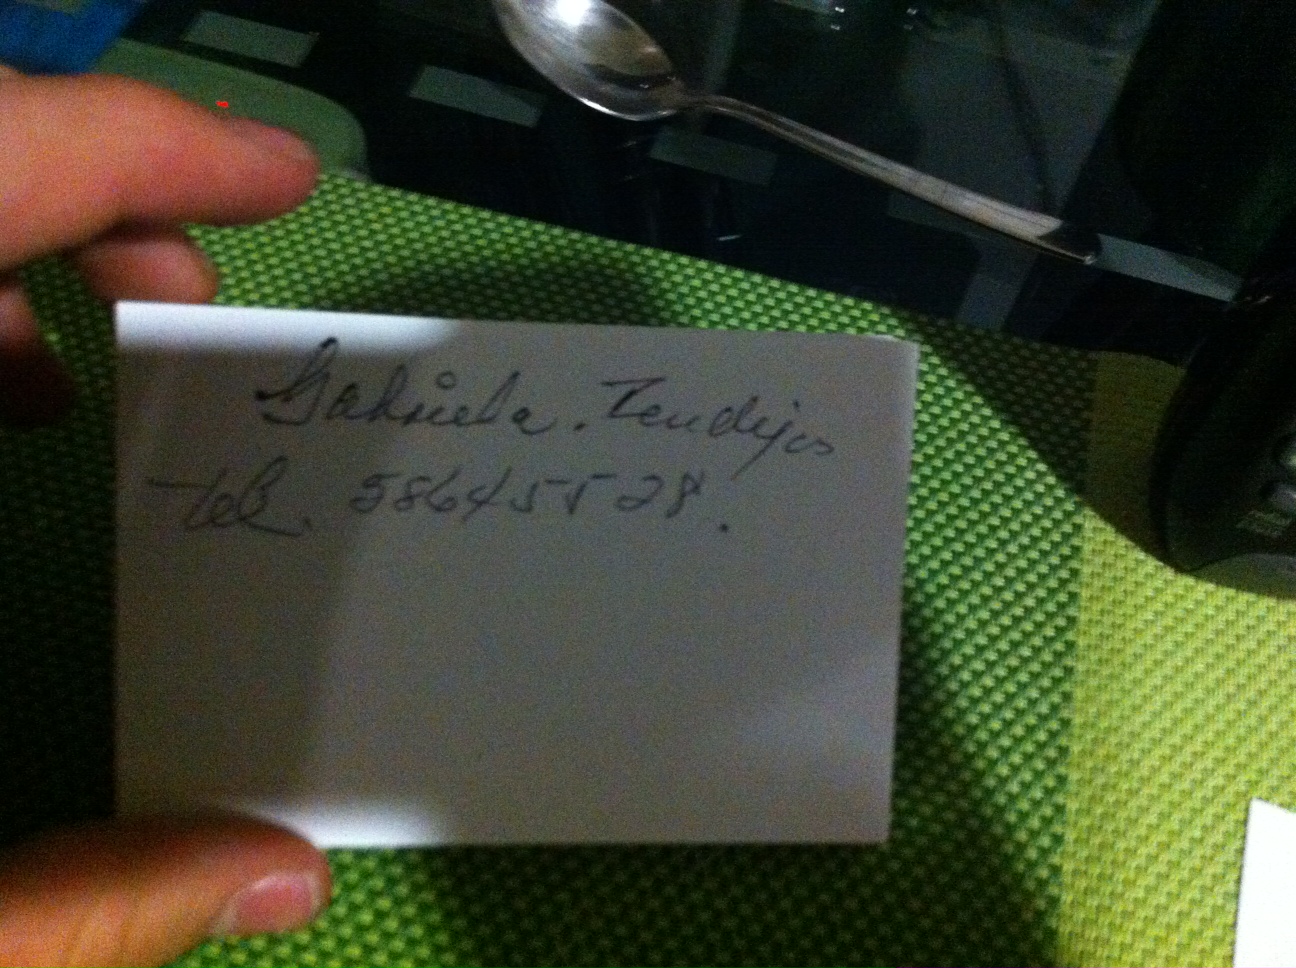 Gabriela. Zendejas
tel. 58645528.